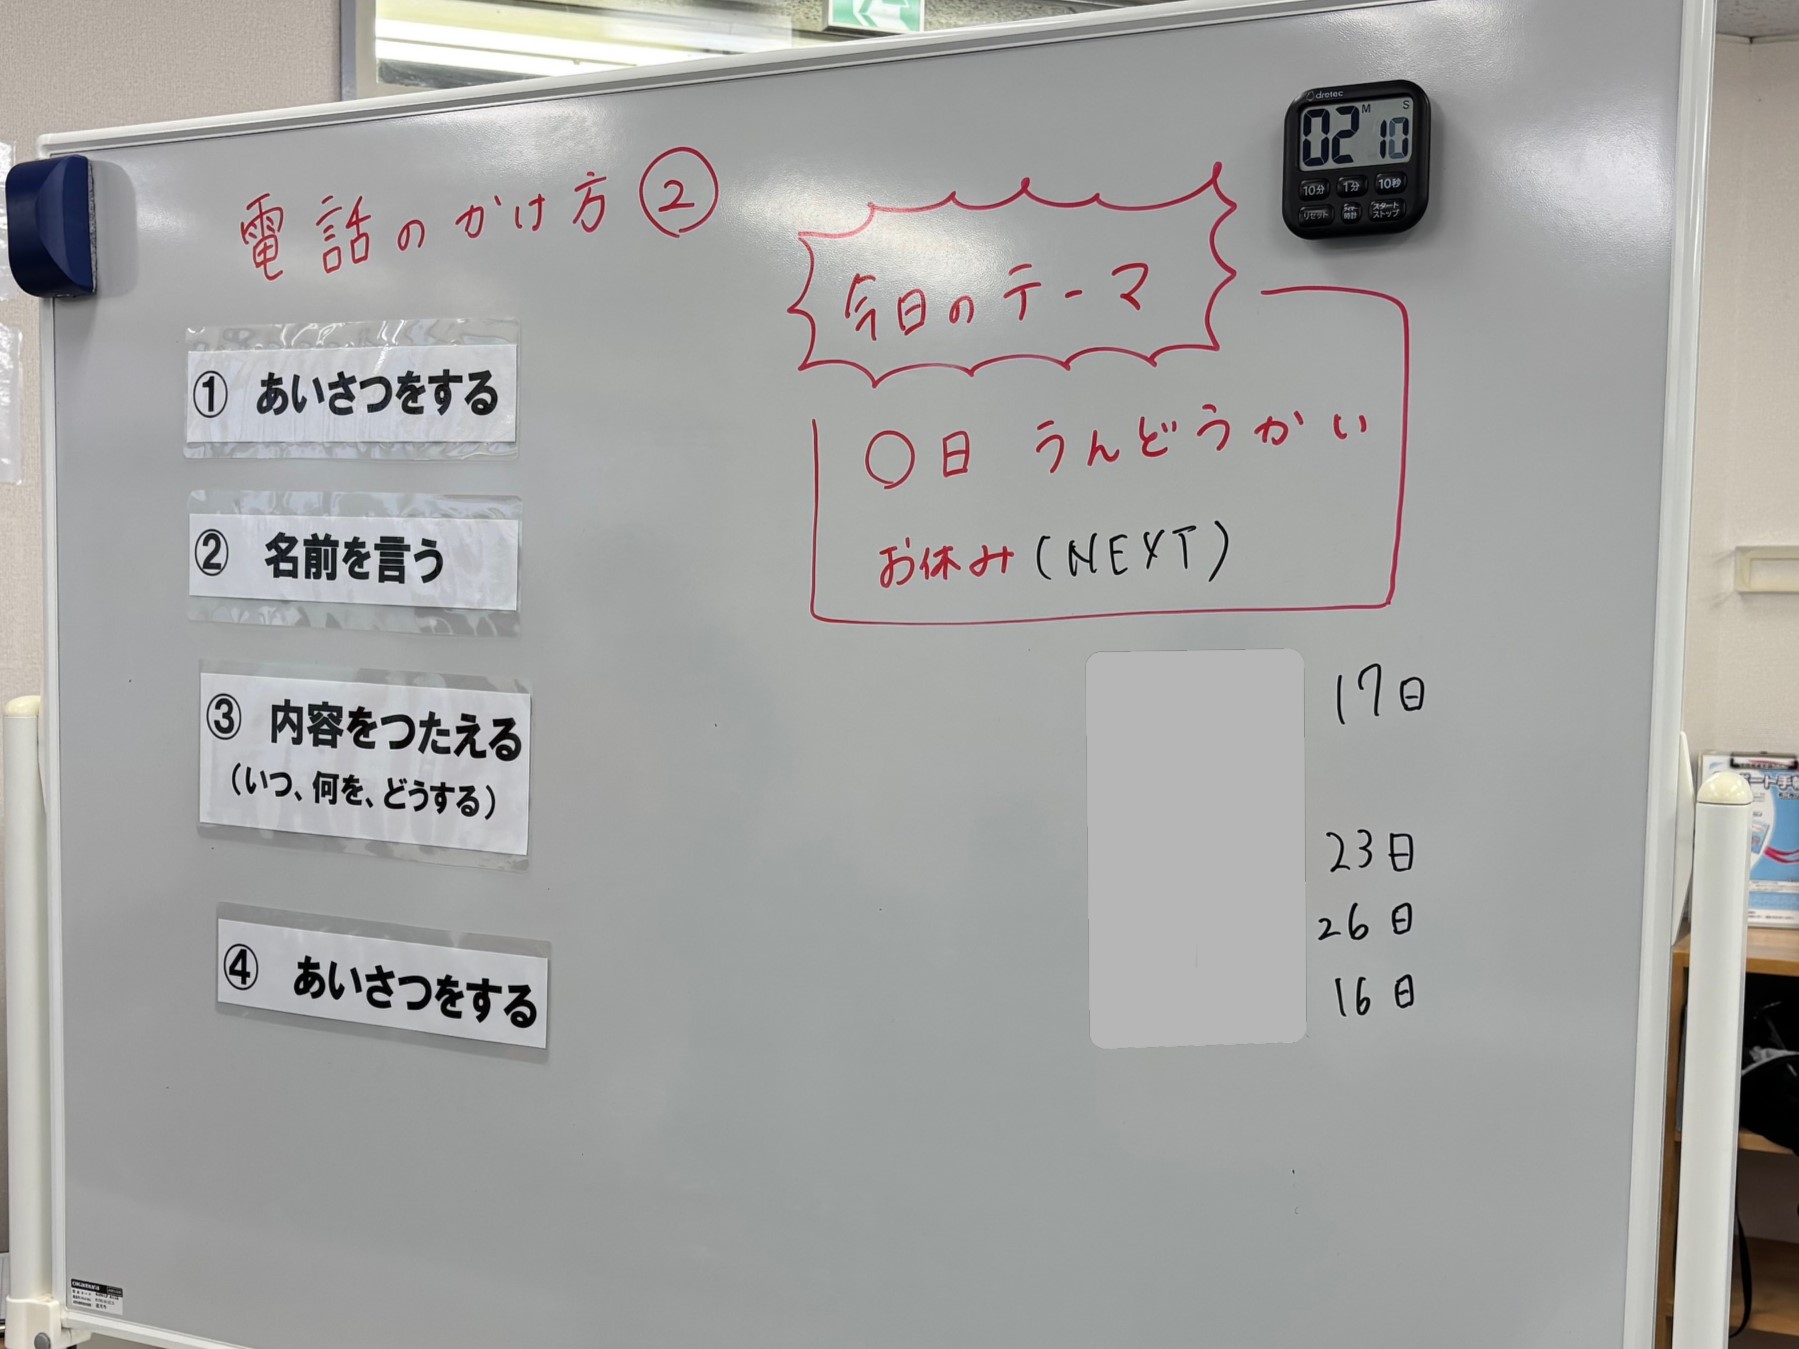 電話のかけ方②
① あいさつをする
② 名前を言う
③ 内容をつたえる
(いつ、何を、どうする)
④ あいさつをする
今日のテーマ
〇日 うんどうかい
お休み(NEXT)
17日
23日
26日
16日
dretec
M S
02 10
10分 1分 10秒
リセット 時計 スタート
ストップ